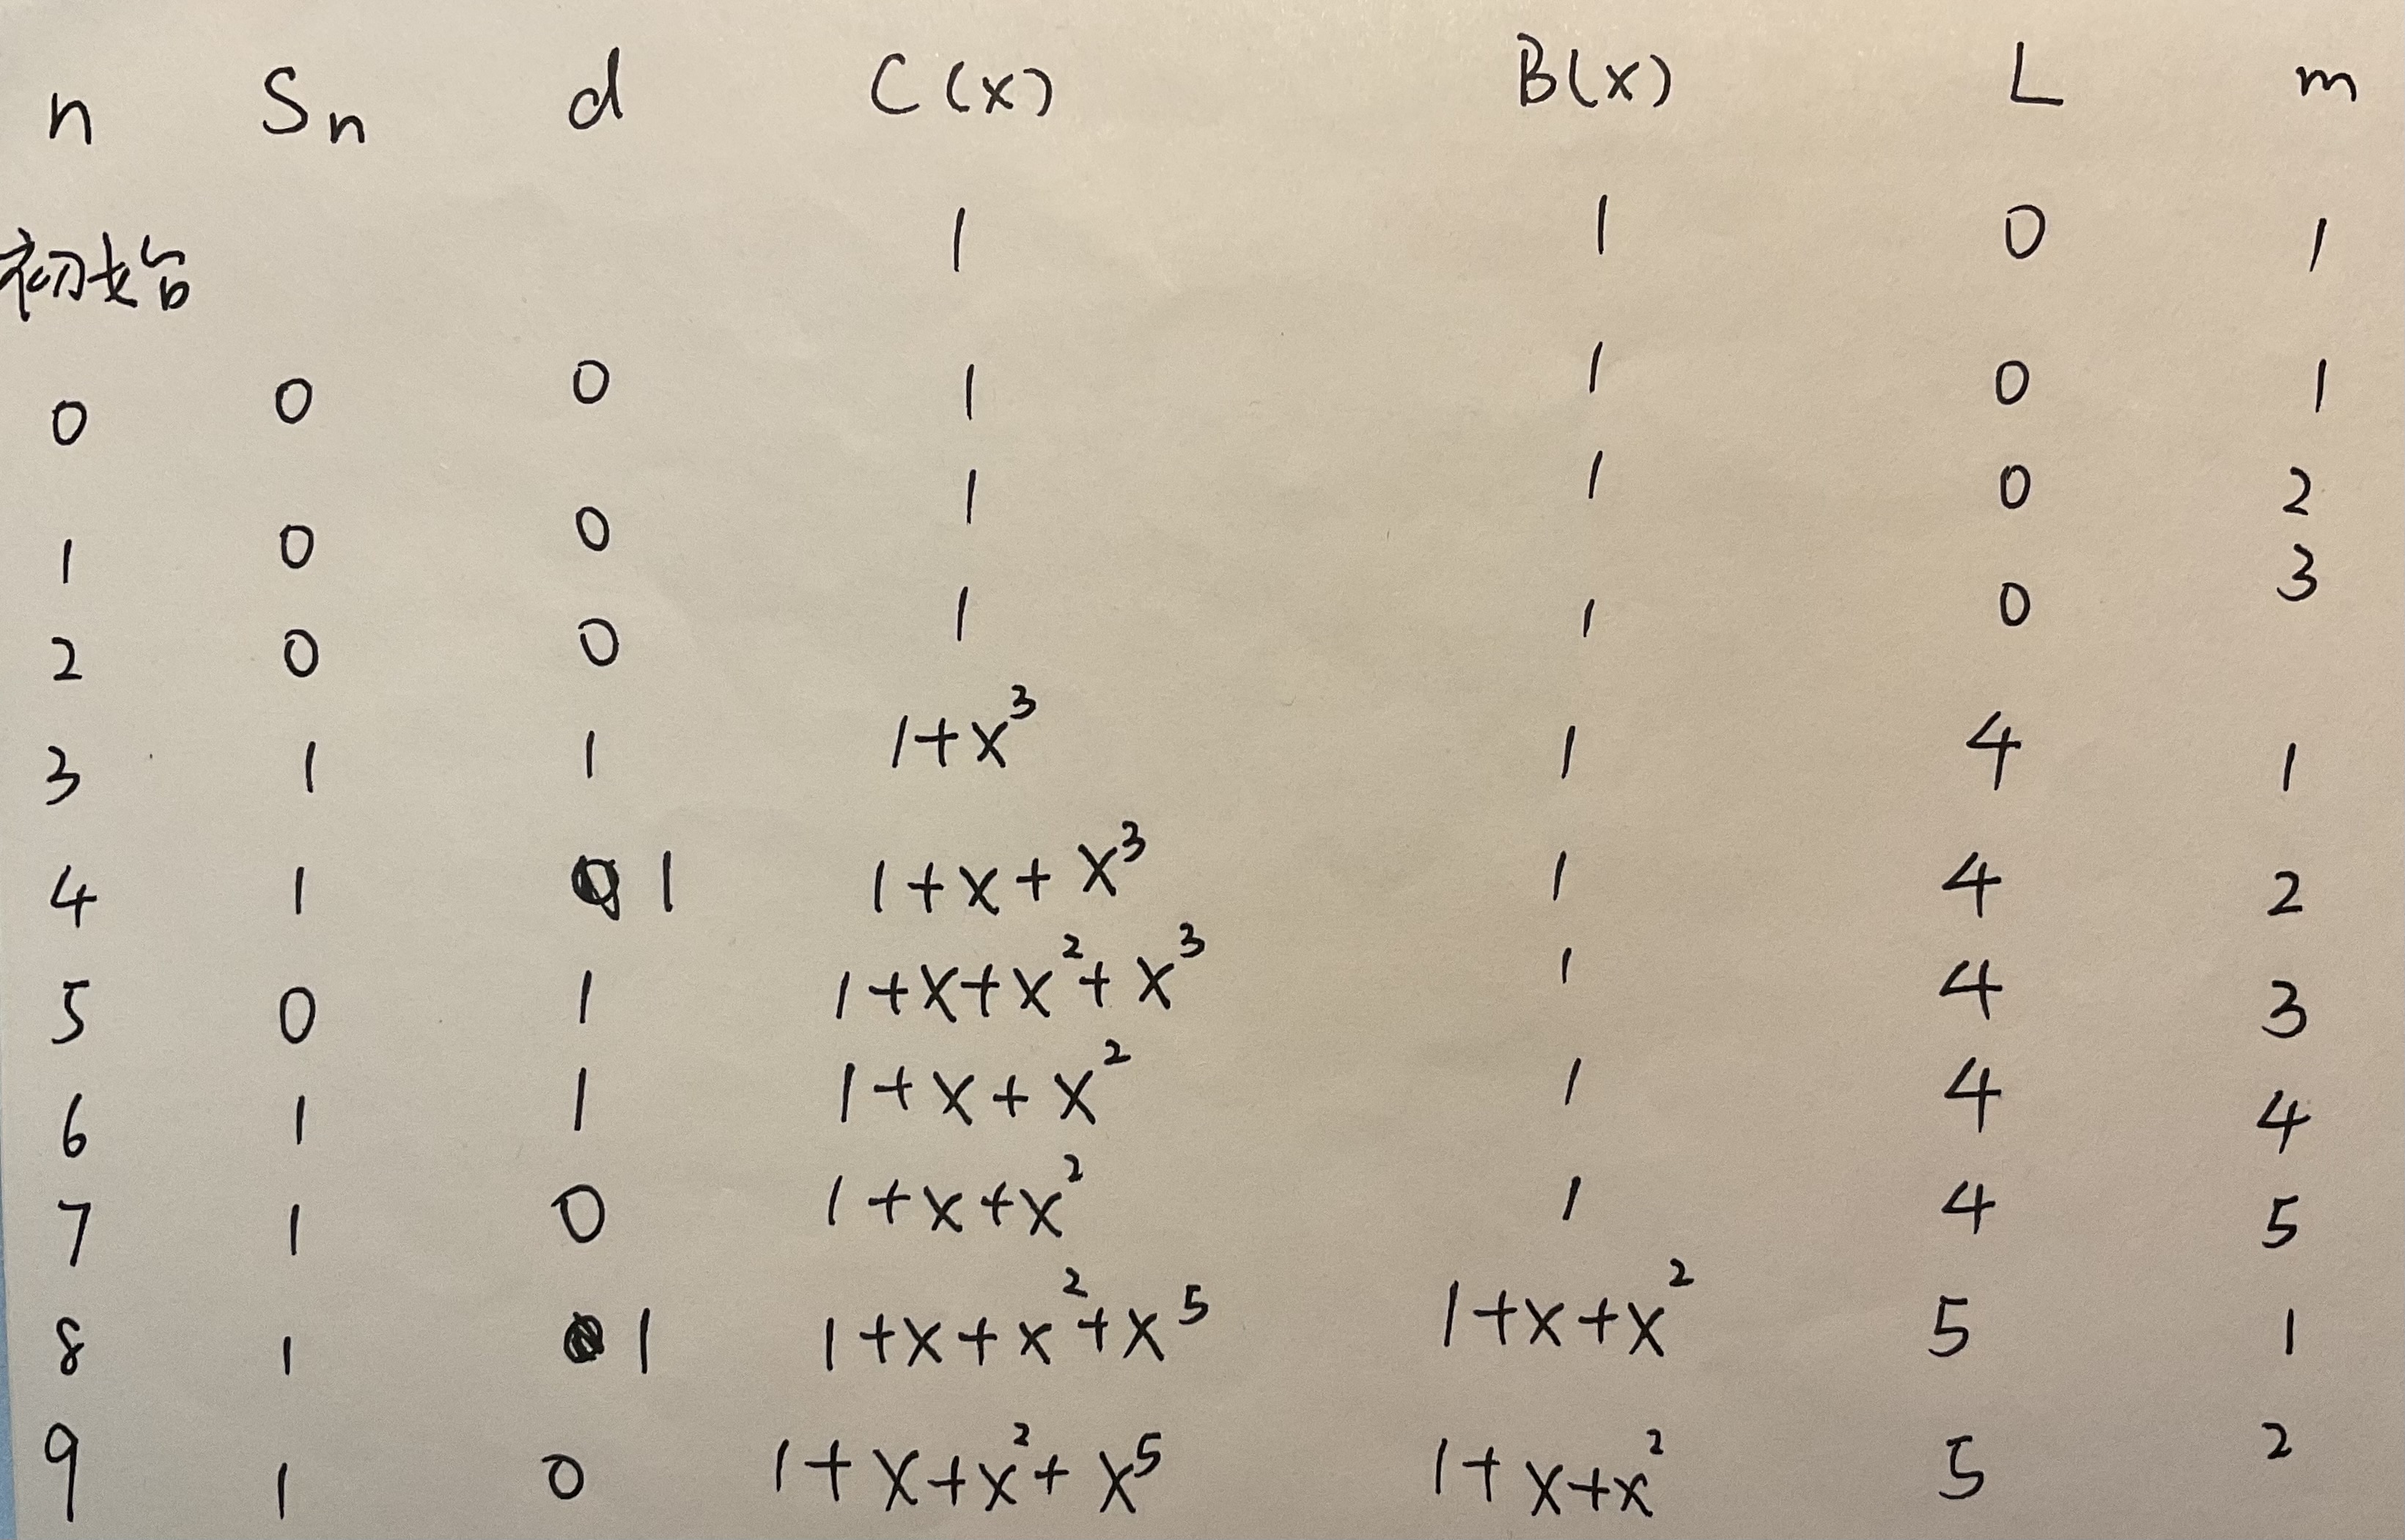 n Sn d C(x) B(x) L m
初始 1 1 0 1
0 0 0 1 1 0 1
1 0 0 1 1 0 2
2 0 0 1 1 0 3
3 1 1 1+x³ 1 4 1
4 1 1 1+x+x³ 1 4 2
5 0 1 1+x+x²+x³ 1 4 3
6 1 1 1+x+x² 1 4 4
7 1 0 1+x+x² 1 4 5
8 1 1 1+x+x²+x⁵ 1+x+x² 5 1
9 1 0 1+x+x²+x⁵ 1+x+x² 5 2